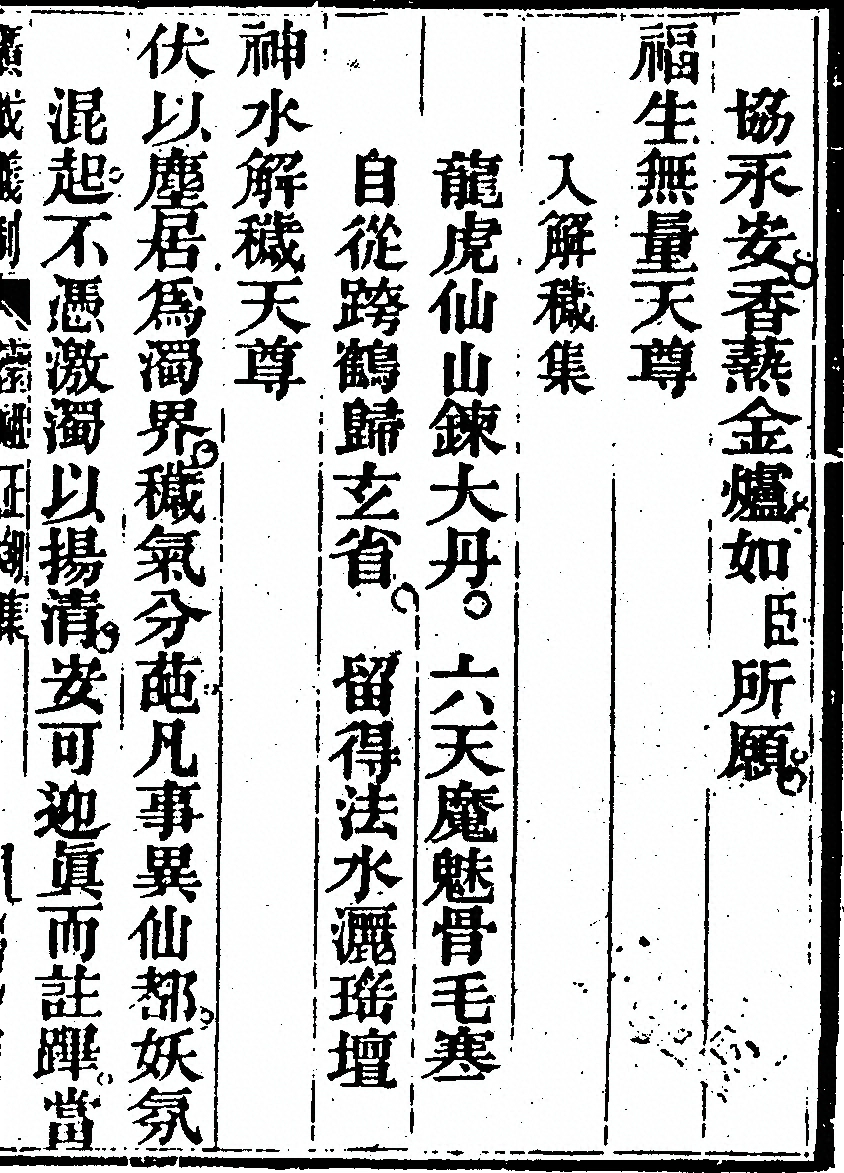 協永安香爇金爐如臣所願
福生無量天尊
入解穢集
龍虎仙山鍊大丹。六天魔魅骨毛寒
自從跨鶴歸玄省。留得法水灑瑤壇
神水解穢天尊
伏以塵居爲濁界穢氣分葩凡事異仙都妖氛
混起不憑激濁以揚清安可迎眞而註蹕當